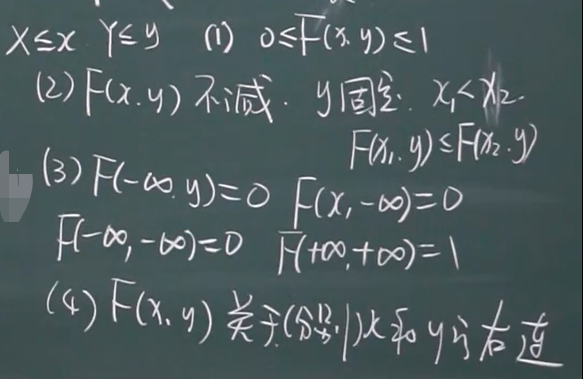 X≤x Y≤y (1) 0≤F(x.y)≤1
(2) F(x.y) 不减. y固定. x₁<x₂.
F(x₁.y)≤F(x₂.y)
(3) F(-∞.y)=0 F(x,-∞)=0
F(-∞,-∞)=0 F(+∞,+∞)=1
(4) F(x,y) 关于(分别)x和y 右连